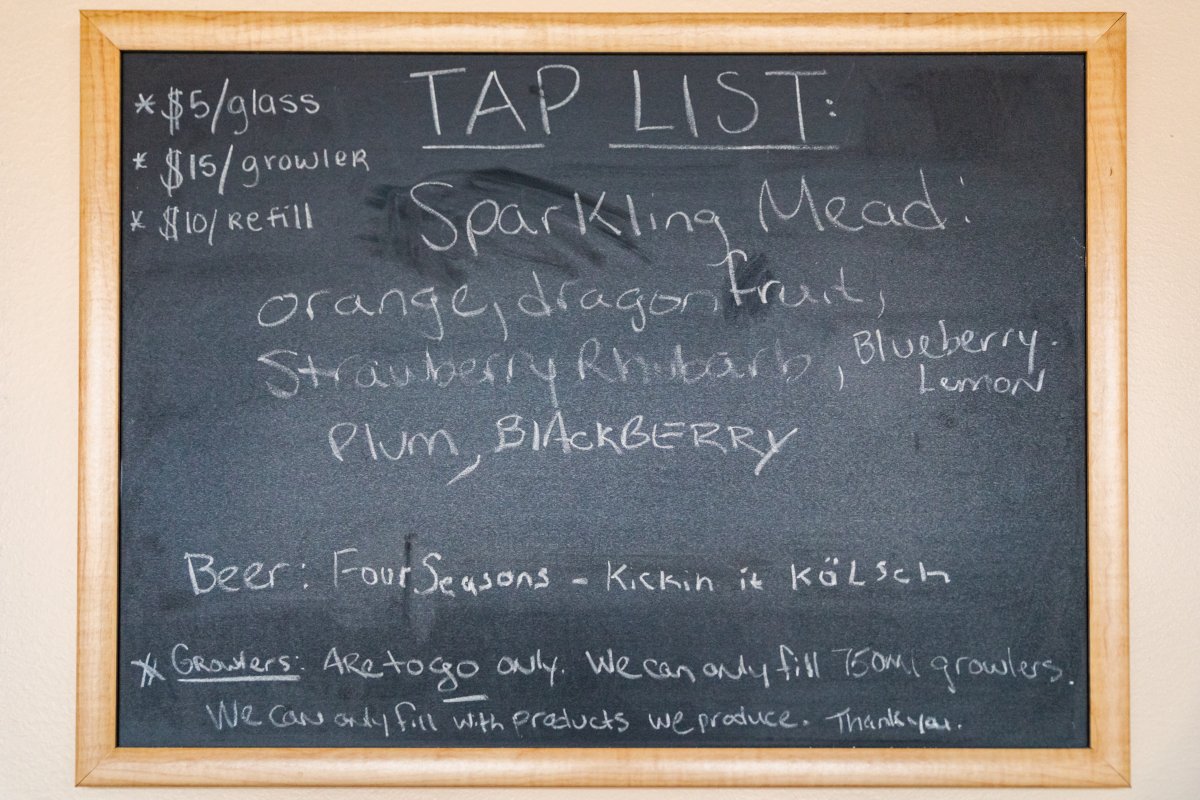 TAP LIST:
* $5/glass
* $15/growler
* $10/Refill
Sparkling Mead:
orange, dragon fruit,
Strawberry Rhubarb, Blueberry.
Lemon
Plum, BlAckBERRY
Beer: Four Seasons - Kickin it KöLsch
* Growlers: ARe to go only. We can only fill 750ml growlers.
We can only fill with products we produce. Thank you.